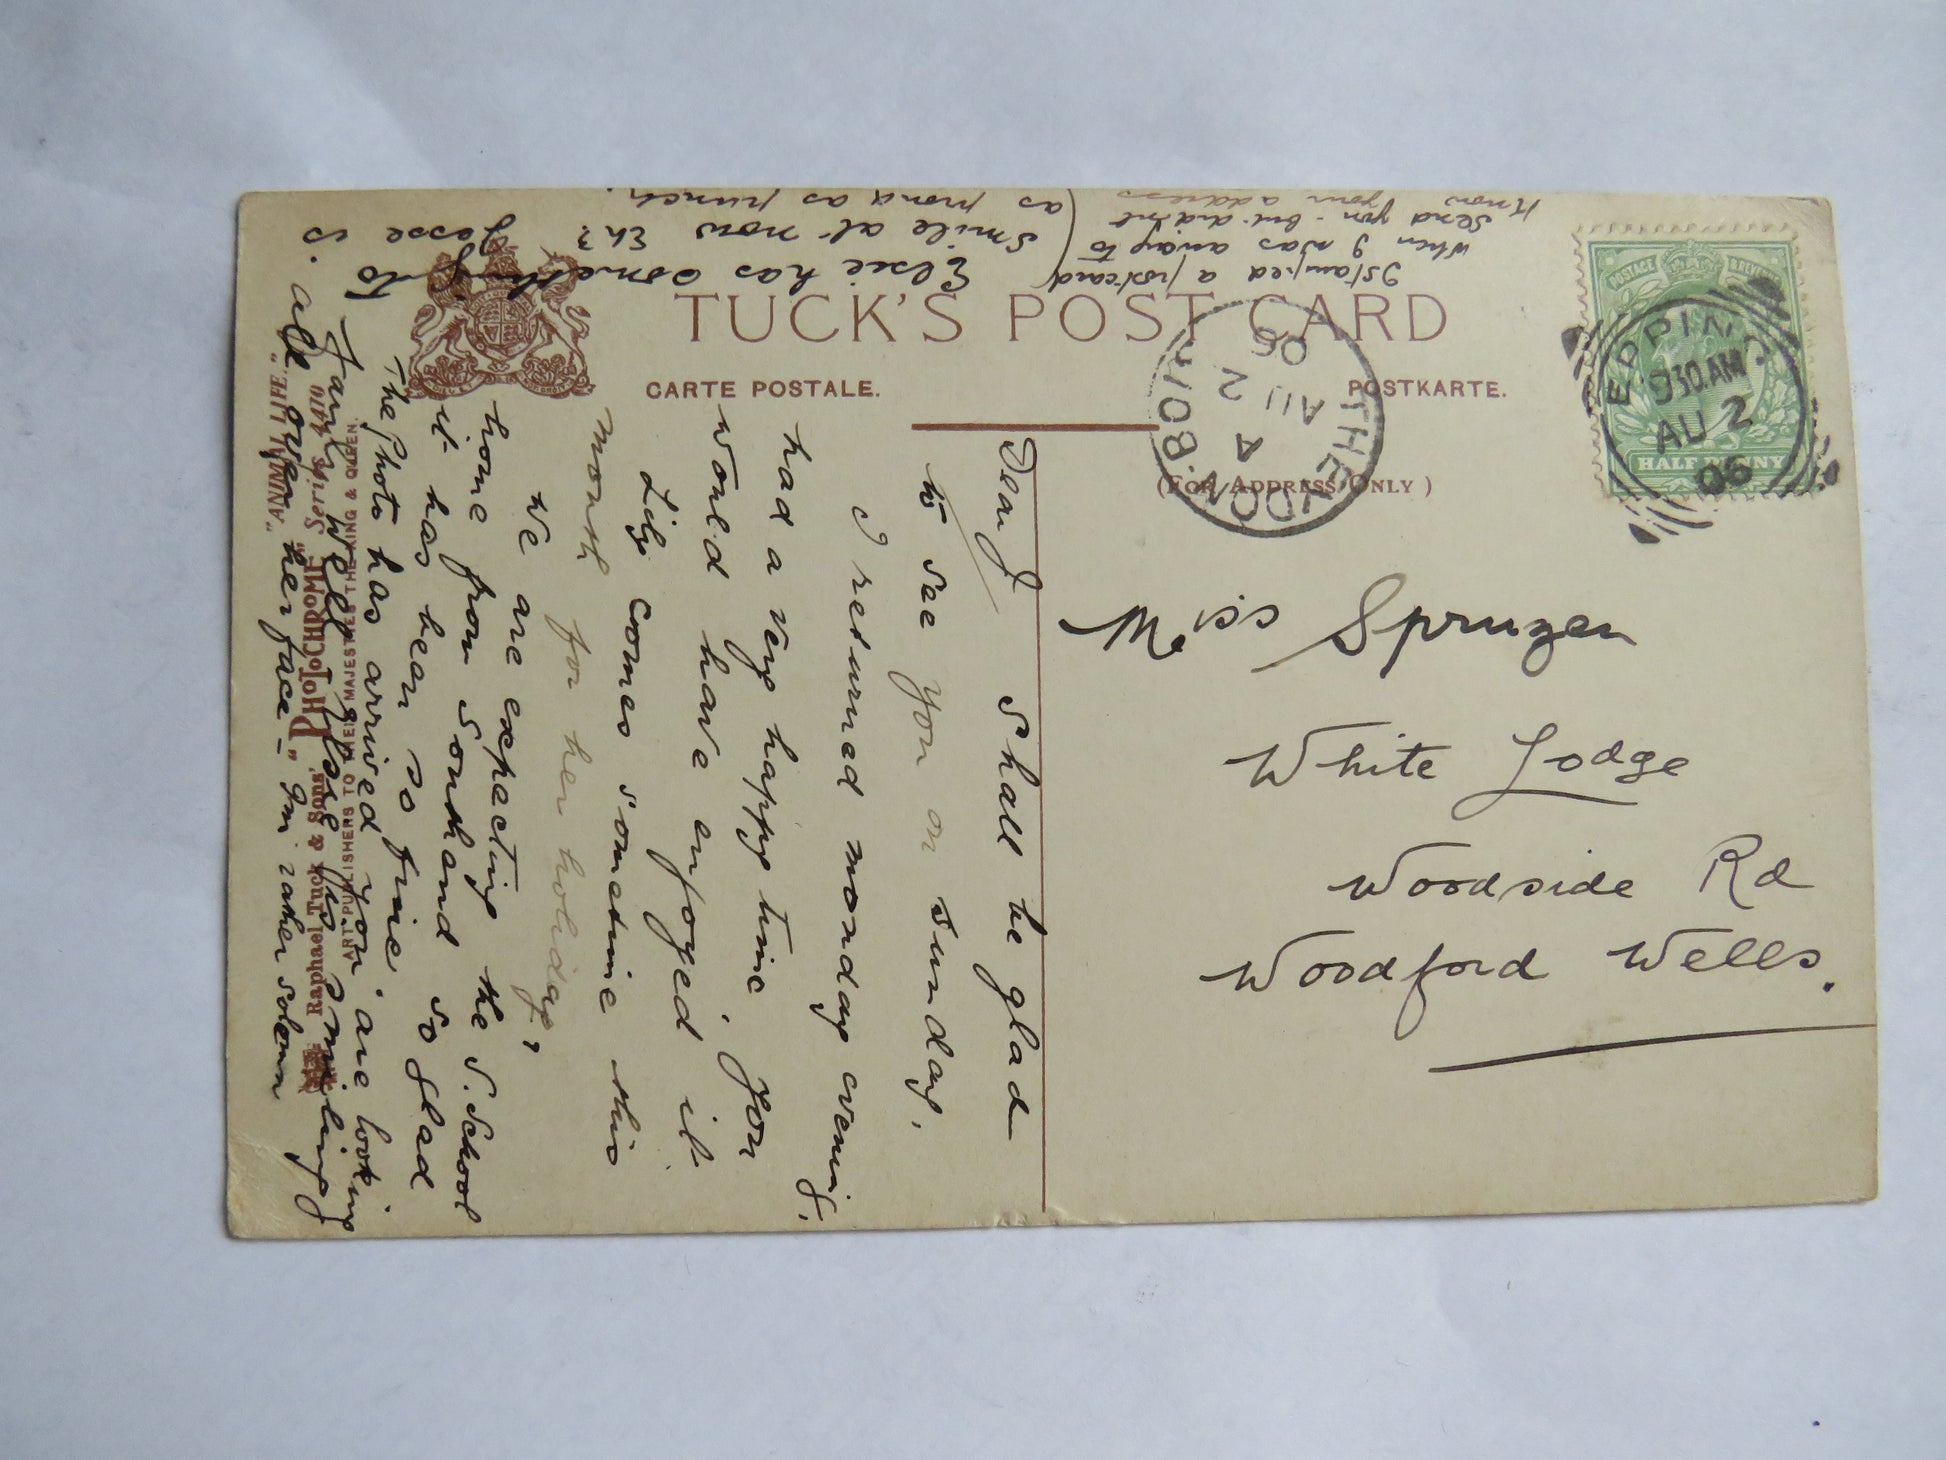 TUCK'S POST CARD
CARTE POSTALE.
POSTKARTE.
(FOR ADDRESS ONLY)
POSTAGE & REVENUE
HALF PENNY
EPPING
9.30 AM
AU 2
06
THEYDON BOIS
A
AU 2
06
Miss Spruzen
White Lodge
Woodside Rd
Woodford Wells.
Dear J shall be glad
to see you on Sunday.
I returned monday evening,
had a very happy time. you
would have enjoyed it
Lily comes sometime this
month for her holiday,
we are expecting the S. School
home from Southend so glad
it has been so fine
The Photo has arrived you are looking
fairly well Elsie is smiling
all over her face – I'm rather solemn
Elsie has something to
smile at now Eh? Jesse is
as proud as punch.
I stamped a postcard
when I was away to
send you - but didn't
know your address
"ANNA LIFFE"
Raphael Tuck & Sons' "PHOTOCHROME" Series
ART PUBLISHERS TO THEIR MAJESTIES THE KING & QUEEN.